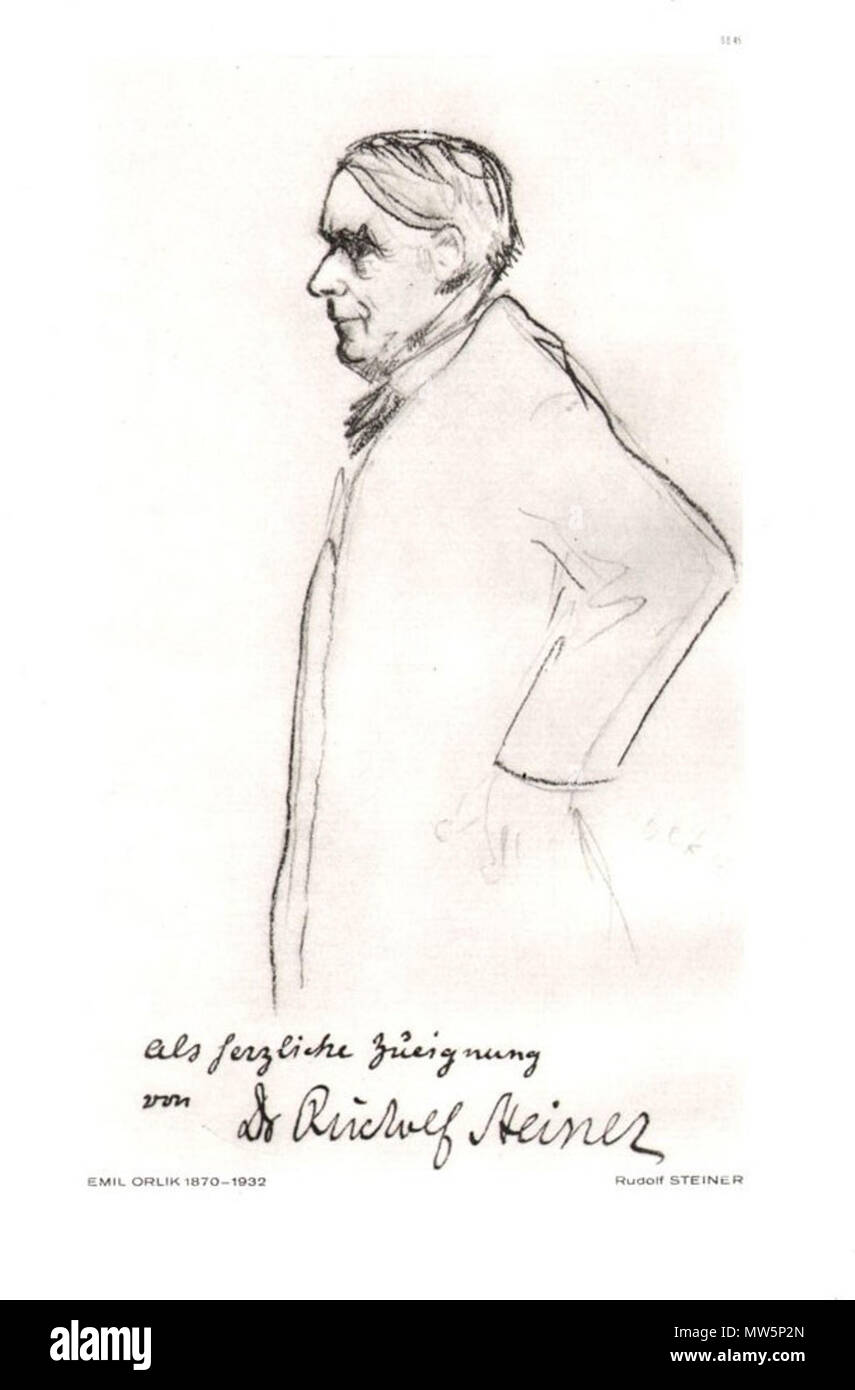 als herzliche Zueignung
von Dr Rudolf Steiner
EMIL ORLIK 1870–1932
Rudolf STEINER
a
alamy
Image ID: MW5P2N
www.alamy.com